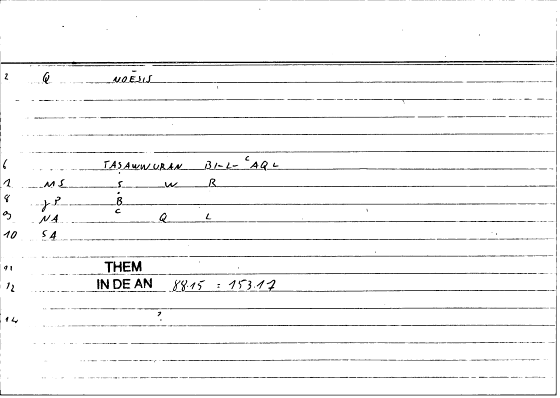 2 Q NOĒSIS
6 TAṢAWWURAN BI-L-ᶜAQL
7 MS Ṣ W R
8 JP B
9 NA ᶜ Q L
10 SA
11 THEM
12 IN DE AN 88.15 = 153.17
14 ?